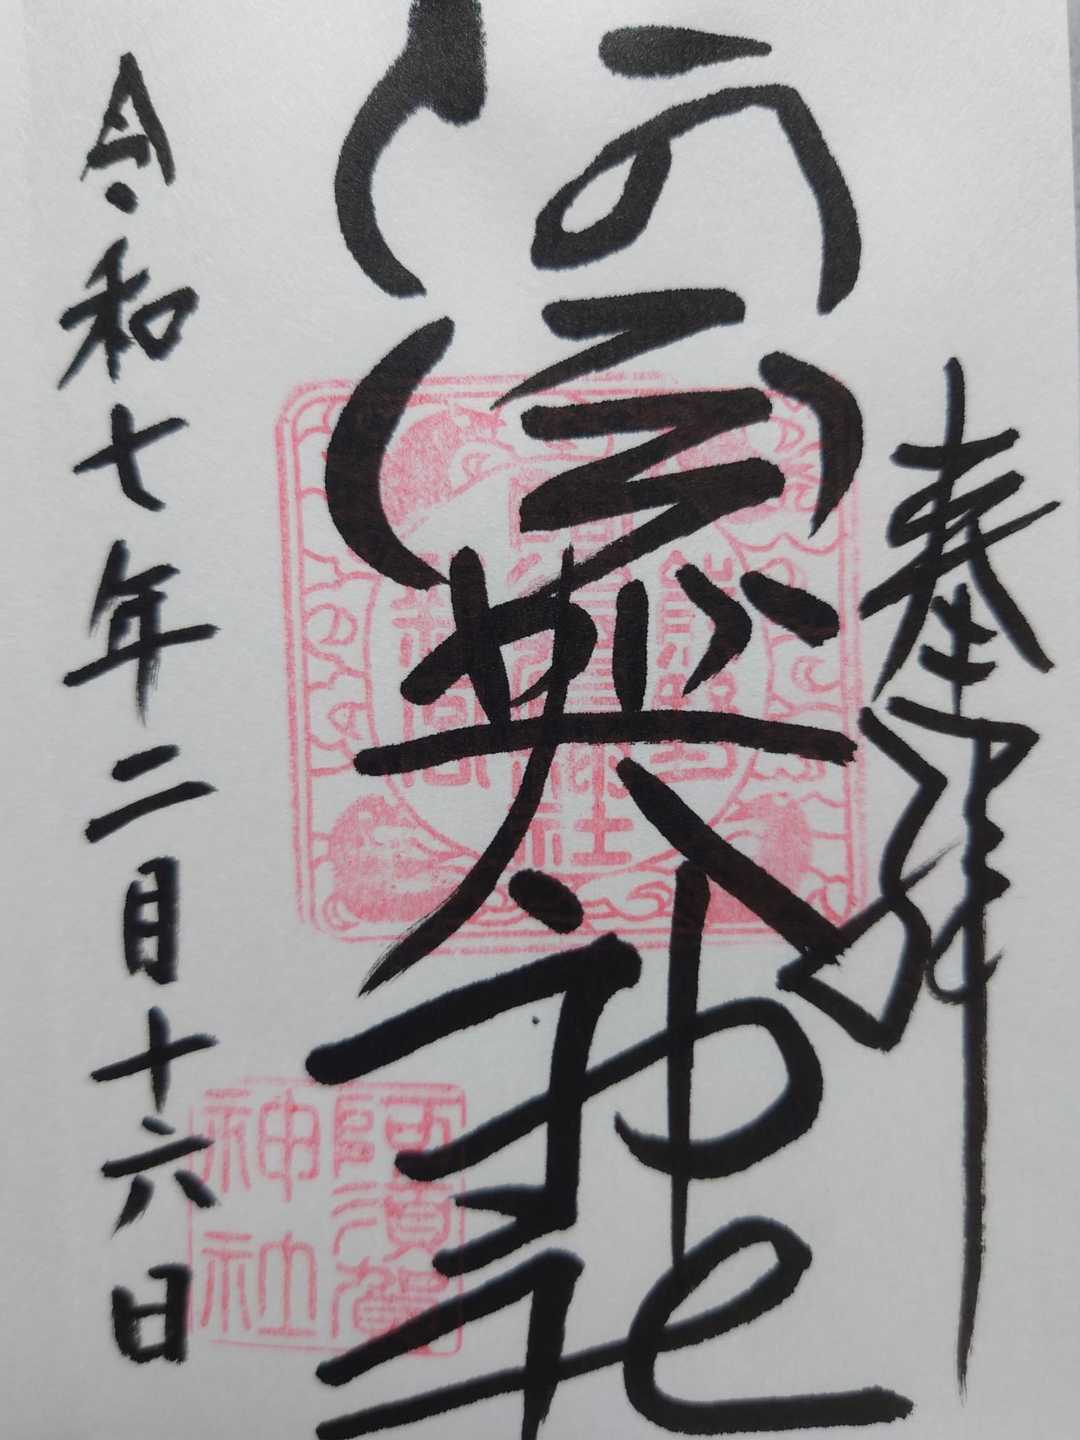 奉拝
阿須賀神社
阿須賀
神社
令和七年二月十六日